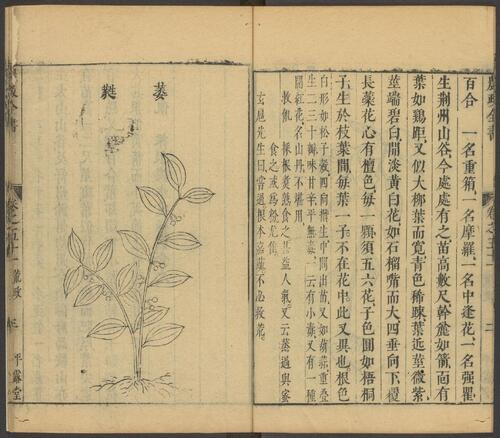 農政全書
百合 一名重箱、一名摩羅、一名中逢花、一名強瞿
生荆州山谷、今處處有之、苗高數尺、幹麄如箭、面有
葉如鷄距、又似大柳葉而寬、青色稀踈、葉近莖微紫
莖端碧白、開淡黃白花、如石榴嘴而大、四垂向下、覆
長蘂、花心有檀色、每一顆須五六花、子色圓如梧桐
子、生於枝葉間、每葉一子、不在花中、此又異也、根色
白、形如松子殼、四向攢生、中間出苗、又如葫蒜、重疊
生二三十瓣、味甘辛平、無毒、一云有小毒、又有一種
開紅花、名山丹、不堪用
救飢 採根煑熟食之、甚益人氣、又云蒸過與蜜
食之、或爲粉尤佳
玄扈先生曰、嘗過根本
不必救荒
萎蕤
農政全書
卷之五十一 荒政 三 平露堂